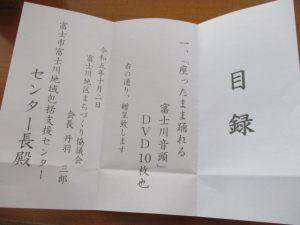 目録
一、「座ったまま踊れる
富士川音頭」
DVD10枚也
右の通り、贈呈致します
令和五年十月二日
富士川地区まちづくり協議会
会長 丹羽 三郎
富士市富士川地域包括支援センター
センター長殿